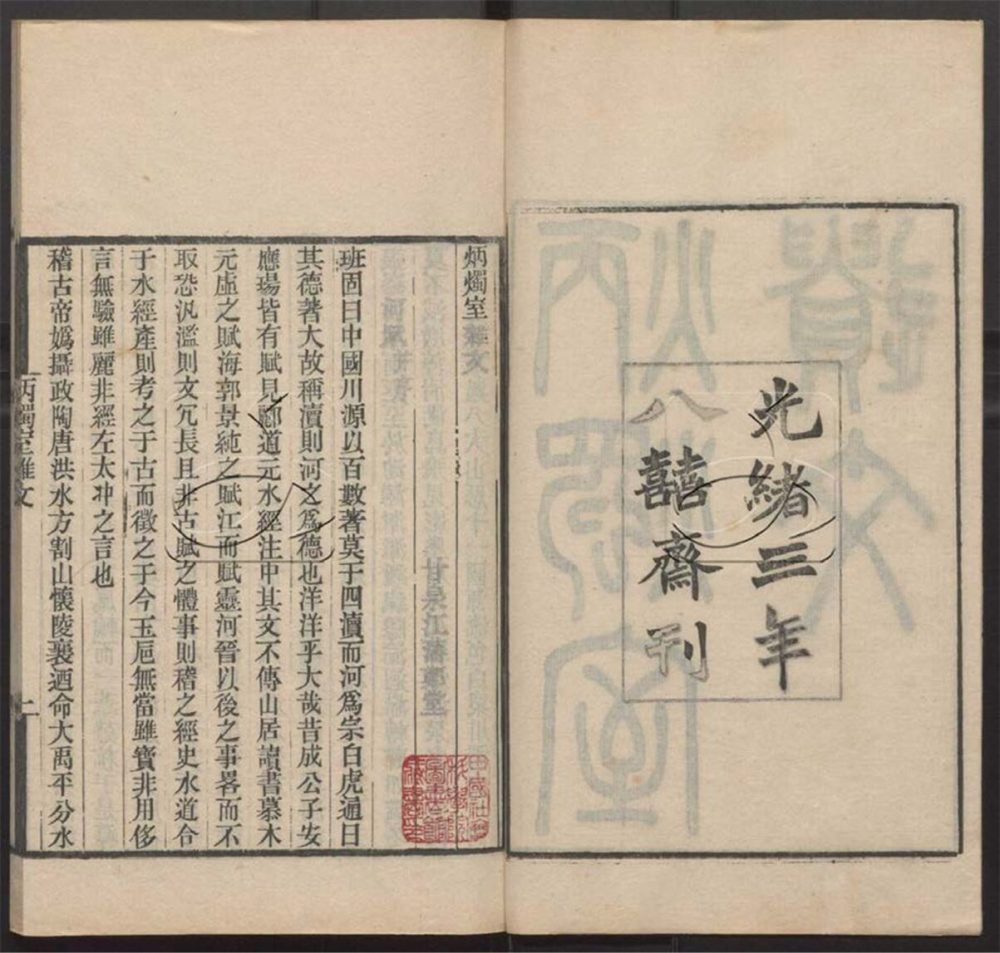 光緒三年
八囍齋刊
炳燭室雜文
甘泉江藩鄭堂
班固曰中國川源以百數著莫于四瀆而河爲宗白虎通曰
其德著大故稱瀆則河之爲德也洋洋乎大哉昔成公子安
應瑒皆有賦見酈道元水經注中其文不傳山居讀書慕木
元虛之賦海郭景純之賦江而賦靈河晉以後之事畧而不
取恐汎濫則文冗長且非古賦之體事則稽之經史水道合
于水經產則考之于古而徵之于今玉卮無當雖寶非用侈
言無驗雖麗非經左太冲之言也
稽古帝嬀攝政陶唐洪水方割山懷陵襄迺命大禹平分水
炳燭室雜文
二